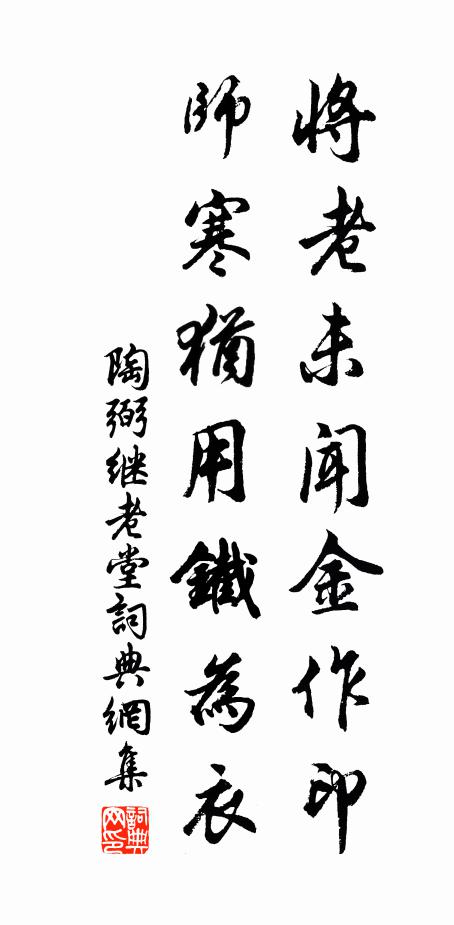 將老未聞金作印
師寒猶用鐵為衣
陶弼继老堂詞典網集
詞典网印